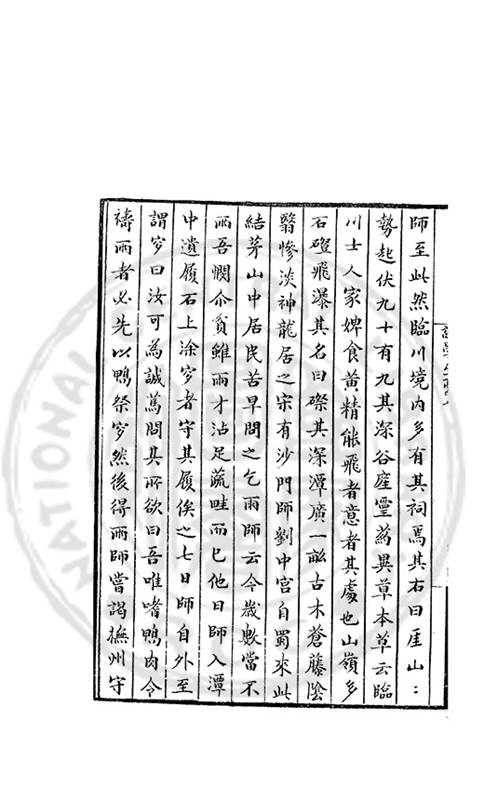 師至此然臨川境内多有其祠焉其右曰崖山〻
勢起伏九十有九其深谷產靈藥異草本草云臨
川士人家婢食黄精能飛者意者其處也山嶺多
石磴飛瀑其名曰磜其深潭廣一畝古木蒼藤陰
翳慘淡神龍居之宋有沙門師劉中宫自蜀來此
結茅山中居民苦旱問之乞雨師云今歲數當不
雨吾憫尒貧雖雨才沾足蔬畦而已他日師入潭
中遺履石上涂穸者守其履俟之七日師自外至
謂穸曰汝可為誠藁問其所欲曰吾唯嗜鴨肉今
禱雨者必先以鴨祭穸然後得雨師嘗謁撫州守
NATIONAL